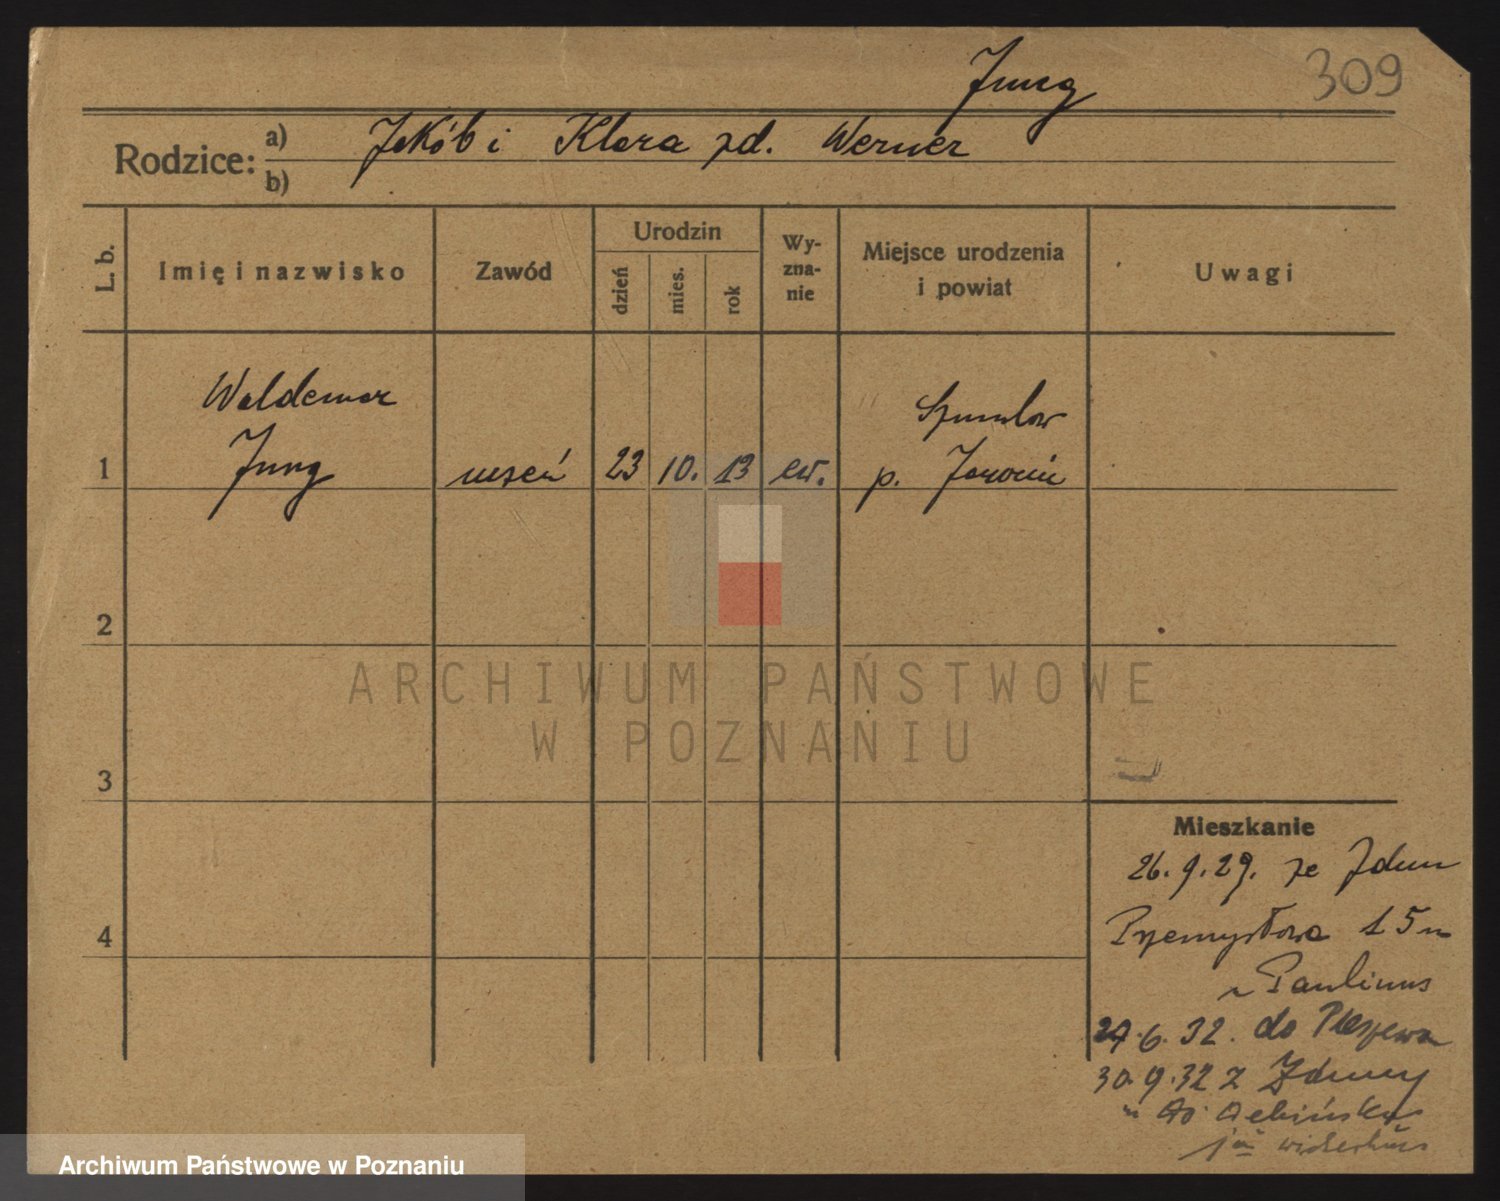 Jung
309
Rodzice:
a) Jakób i Klara zd. Werner
b)
L. b.
Imię i nazwisko
Zawód
Urodzin
dzień
mies.
rok
Wy-
zna-
nie
Miejsce urodzenia
i powiat
Uwagi
Waldemar
Jung
1
uczeń
23
10.
13
ew.
p. Jarocin
2
3
4
ARCHIWUM PAŃSTWOWE
W POZNANIU
Mieszkanie
26.9.29. ze Zdun
Przemysłowa 15
u Paulinus
27.6.32. do Pleszewa
30.9.32 z Zduny
Archiwum Państwowe w Poznaniu